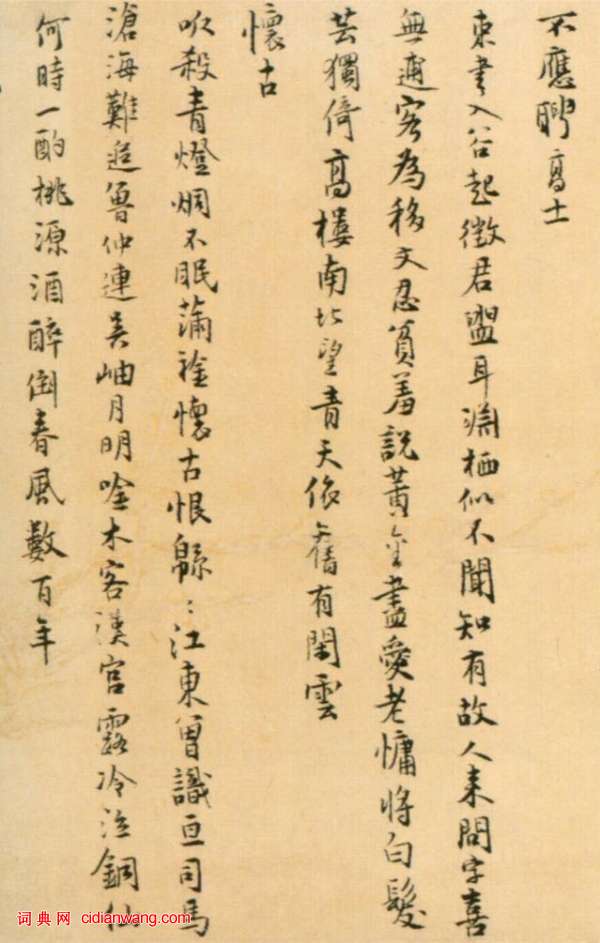 不應聘高士
束書入谷起徵君盥耳深栖似不聞知有故人来問字喜
無逋客為移文忍貧羞説黄金盡愛老慵将白髮
芸獨倚高樓南北望青天依舊有閑雲
懷古
吹殺青燈烱不眠蒲衾懷古恨緜〻江東曾識亘司馬
滄海難追魯仲連吳岫月明唫木客漢宮露冷泣銅仙
何時一酌桃源酒醉倒春風數百年
词典网 cidianwang.com